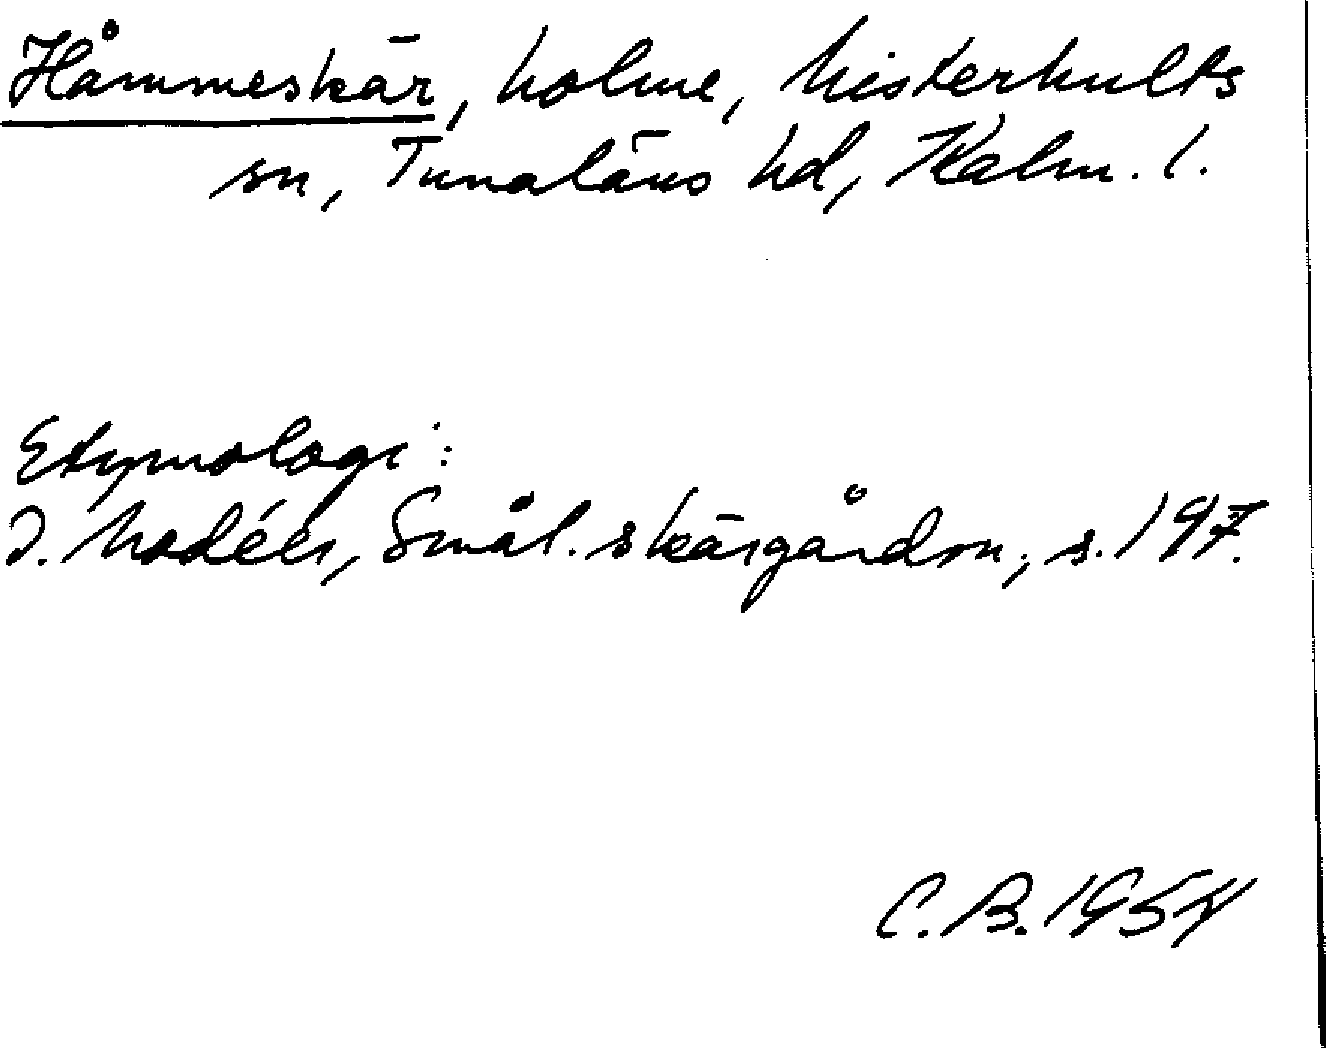 Håmmeskär, holme, Misterhults
sn, Tunaläns hd, Kalm. l.
Etymologi:
I. Modéer, Smål. skärgårdsn, s. 197.
C. B. 1954